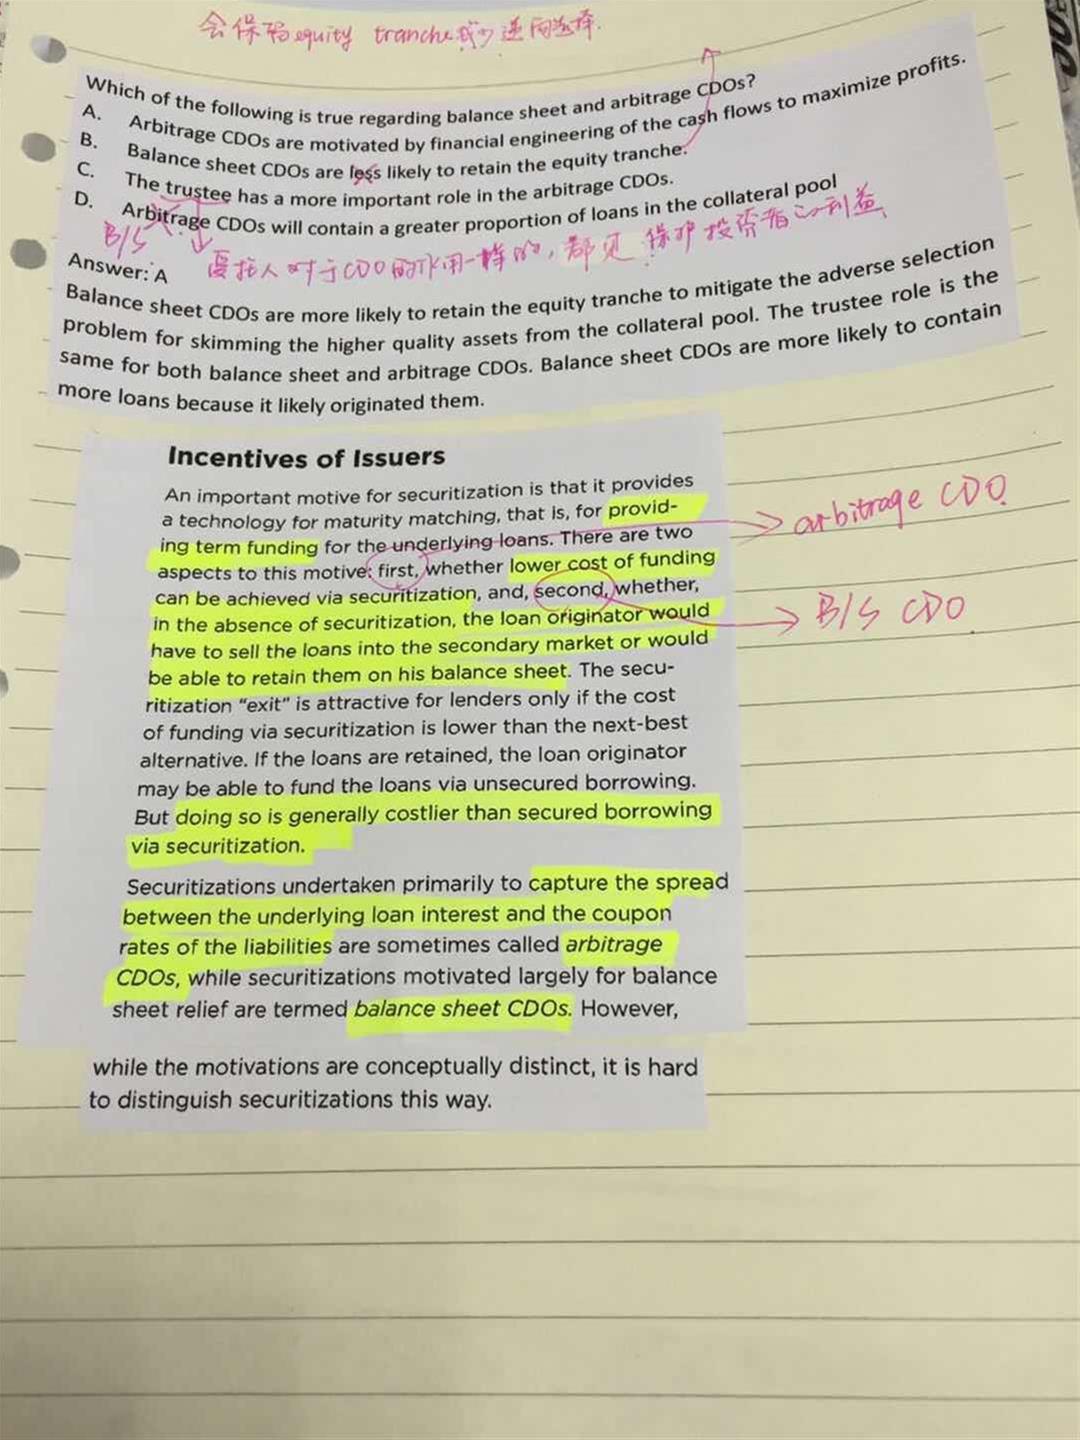 会保留equity tranche减少逆向选择.
Which of the following is true regarding balance sheet and arbitrage CDOs?
A. Arbitrage CDOs are motivated by financial engineering of the cash flows to maximize profits.
B. Balance sheet CDOs are less likely to retain the equity tranche.
C. The trustee has a more important role in the arbitrage CDOs.
D. Arbitrage CDOs will contain a greater proportion of loans in the collateral pool
B/S
受托人对于CDO的作用一样的, 都是 保护投资者的利益
Answer: A
Balance sheet CDOs are more likely to retain the equity tranche to mitigate the adverse selection
problem for skimming the higher quality assets from the collateral pool. The trustee role is the
same for both balance sheet and arbitrage CDOs. Balance sheet CDOs are more likely to contain
more loans because it likely originated them.
Incentives of Issuers
An important motive for securitization is that it provides
a technology for maturity matching, that is, for provid-
ing term funding for the underlying loans. There are two
aspects to this motive: first, whether lower cost of funding
can be achieved via securitization, and, second, whether,
in the absence of securitization, the loan originator would
have to sell the loans into the secondary market or would
be able to retain them on his balance sheet. The secu-
ritization “exit” is attractive for lenders only if the cost
of funding via securitization is lower than the next-best
alternative. If the loans are retained, the loan originator
may be able to fund the loans via unsecured borrowing.
But doing so is generally costlier than secured borrowing
via securitization.
arbitrage CDO
B/S CDO
Securitizations undertaken primarily to capture the spread
between the underlying loan interest and the coupon
rates of the liabilities are sometimes called arbitrage
CDOs, while securitizations motivated largely for balance
sheet relief are termed balance sheet CDOs. However,
while the motivations are conceptually distinct, it is hard
to distinguish securitizations this way.